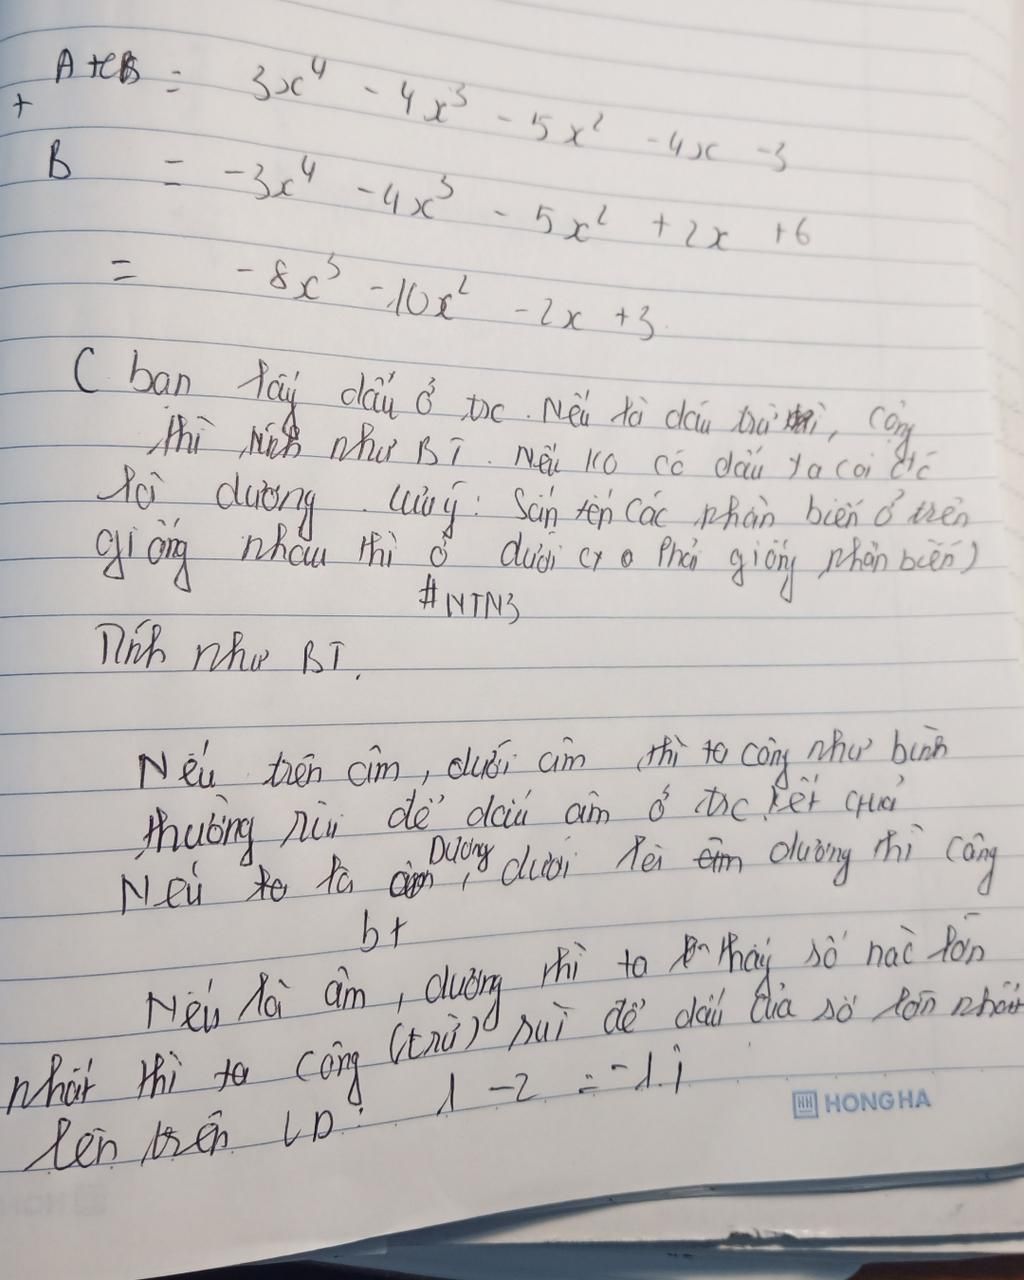 A+B = 3x⁴ - 4x³ - 5x² - 4x - 3
+
B = -3x⁴ - 4x³ - 5x² + 2x + 6
= -8x³ - 10x² - 2x + 3
( bạn lấy dấu ở trc. Nếu là dấu trừ, cộng
thì tính như BT. Nếu ko có dấu ta coi đó
là dương. Lưu ý: Sắp xếp các phần biến ở trên
giống nhau thì ở dưới cx phải giống phần biến)
#NTN3
Tính như BT.
Nếu trên âm, dưới âm thì ta cộng như bình
thường rùi để dấu âm ở trc kết quả
Nếu là Dương, dưới là dương thì cộng
bt
Nếu là âm, dương thì ta thấy số nào lớn
nhất thì ta cộng (trừ) rùi để dấu của số lớn nhất
lên trên VD: 1 - 2 = -1.
HONG HA